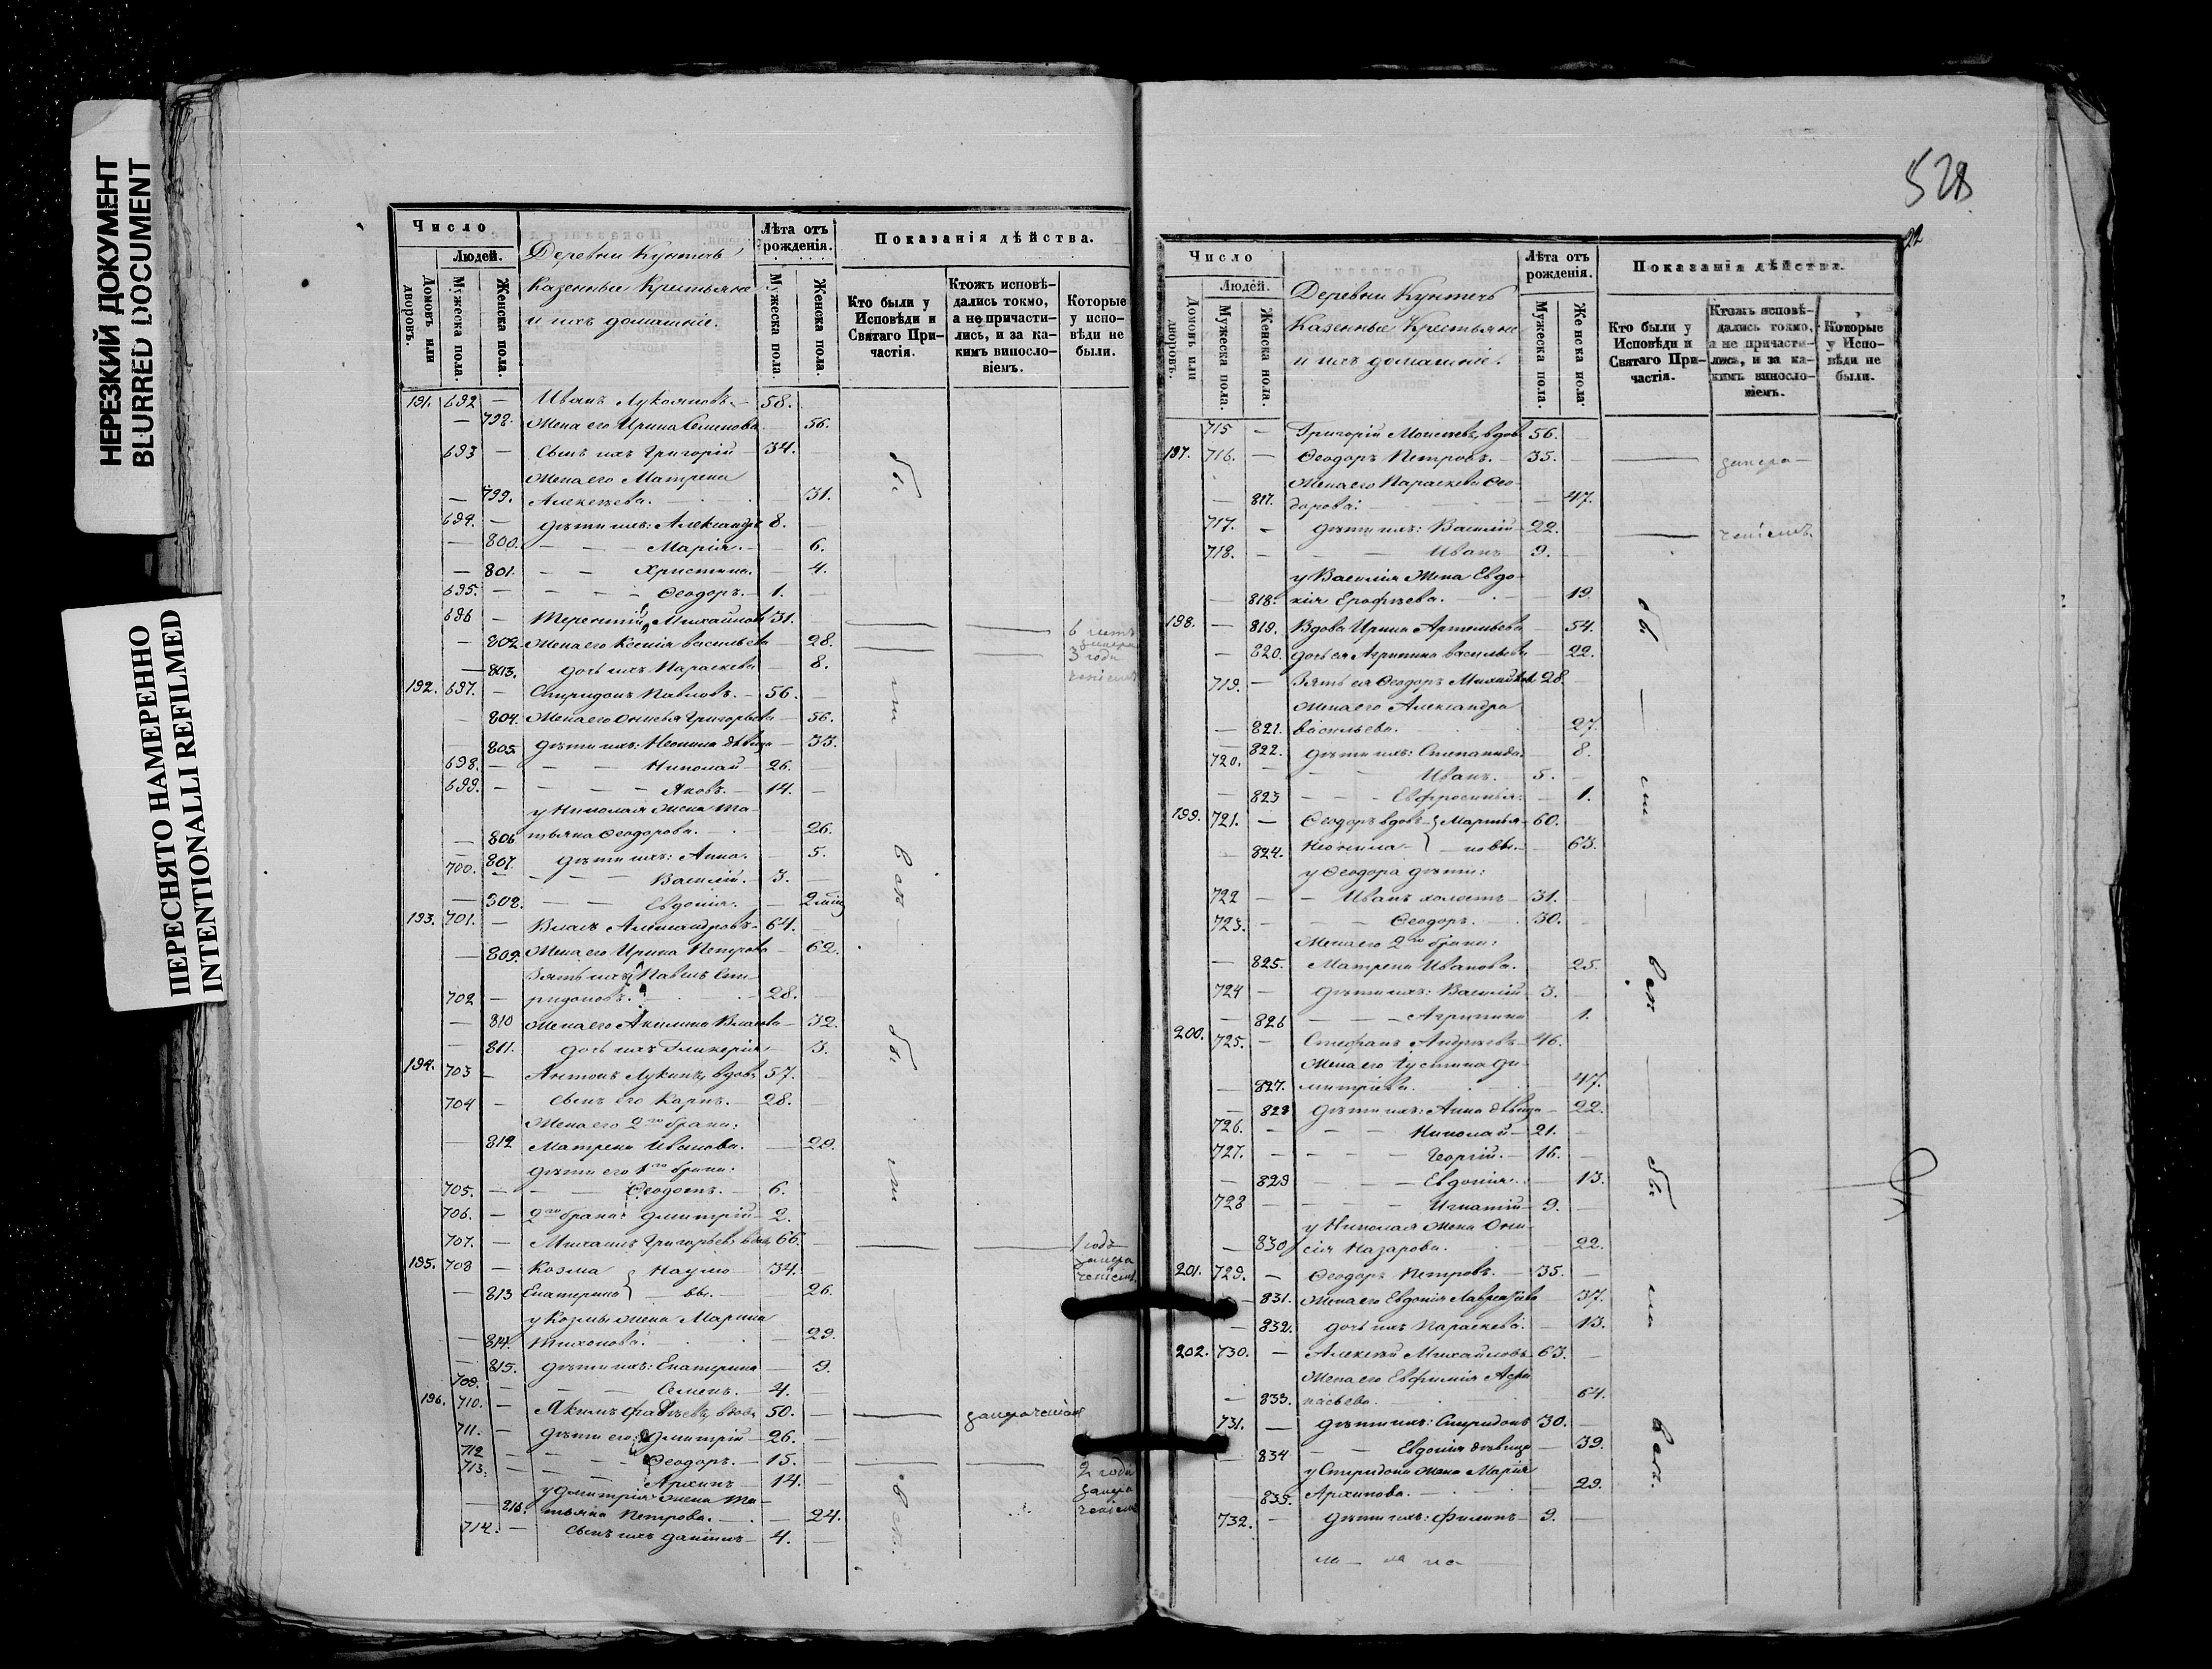 НЕРЕЗКИЙ ДОКУМЕНТ
BLURRED DOCUMENT
ПЕРЕСНЯТО НАМЕРЕННО
INTENTIONALLI REFILMED
Число
Людей.
Домовъ или дворовъ.
Мужеска пола.
Женска пола.
Деревни
Казенные Крестьяне
и ихъ домашніе.
Лѣта отъ рожденія.
Мужеска пола.
Женска пола.
Показанія дѣйства.
Кто были у Исповѣди и Святаго Причастія.
Ктожъ исповѣдались токмо, а не причастились, и за какимъ винословіемъ.
Которые у исповѣди не были.
191. 692 — Иванъ Лукояновъ. — 58.
— 798. Жена его Ирина Семенова — 56.
693 — Сынъ ихъ Григорій — 34.
Жена его Матрена
— 799. Алексѣева. — 31.
694. — дѣти ихъ: Александръ 8. —
— 800. — — Марія. — 6.
— 801. — — Христина. — 4.
695. — — — Ѳеодоръ. — 1. —
696 — Терентій Михайловъ 31.
— 802 Жена его Ксенія Васильева — 28.
— 803. дочь ихъ Параскева — 8.
192. 697. — Спиридонъ Павловъ. — 56. —
— 804. Жена его Онисья Григорьева — 56.
— 805 дѣти ихъ: Неонила дѣвица — 33.
698. — — — Николай — 26. —
699. — — — Яковъ. — 14. —
у Николая жена Та-
— 806 тьяна Ѳеодорова. — 26.
— 807. дѣти ихъ: Анна. — 5.
700. — — — Василій. — 3. —
— 808. — — Евдокія. — 2
193. 701. — Власъ Александровъ — 64. —
— 809. Жена его Ирина Петрова — 62.
Зять ихъ Павелъ Спи-
702 — ридоновъ. — 28. —
— 810 Жена его Акилина Власова — 32.
— 811. дочь ихъ Гликерія — 3.
194. 703 — Антонъ Лукинъ, вдовъ 57. —
704 — Сынъ его Карпъ. — 28. —
Жена его 2го брака:
— 812 Матрена Иванова. — 29.
дѣти его 1го брака:
705. — — Ѳеодотъ. — 6.
706. — 2го брака: Дмитрій — 2.
707. — Михаилъ Григорьевъ вдовъ 66. — 1 годъ
195. 708 — Козма } Наумо — 34. —
— 813 Екатерина } — вы. — 26.
у Козмы жена Марина
— 814. Тихонова. — 29.
— 815. дѣти ихъ: Екатерина — 9.
709. — — — Семенъ. — 4. —
196. 710. — Якимъ вдовъ 50. —
711. — дѣти его: Дмитрій — 26. —
712 — — — Ѳеодоръ. — 15. — 2 года
713. — — — Архипъ — 14. —
у Дмитрія жена Та-
— 816. тьяна Петрова. — 24.
714. — Сынъ ихъ Даніилъ — 4. —
528
Число
Людей.
Домовъ или дворовъ.
Мужеска пола.
Женска пола.
Деревни
Казенные Крестьяне
и ихъ домашніе.
Лѣта отъ рожденія.
Мужеска пола.
Женска пола.
Показанія дѣйства.
Кто были у Исповѣди и Святаго Причастія.
Ктожъ исповѣдались токмо, а не причастились, и за какимъ винословіемъ.
Которые у Исповѣди не были.
715 — Григорій Моисеевъ, вдовъ 56. —
197. 716. — Ѳеодоръ Петровъ. — 35. —
Жена его Параскева Ѳео-
— 817. дорова: — 47.
717. — дѣти ихъ: Василій — 22. —
718. — — Иванъ — 9. —
у Василія жена Евдо-
— 818. кія Ерофѣева. — 19.
198. — 819. Вдова Ирина Артемьева — 54.
— 820. дочь ея Агрипина Васильева 22.
719. — Зять ея Ѳеодоръ Михайловъ 28. —
Жена его Александра
— 821. Васильева. — 27.
— 822. дѣти ихъ: Степанида — 8.
720. — — Иванъ. — 5. —
— 823 — — Евфросинья: — 1.
199. 721. — Ѳеодоръ вдовъ } Мартья — 60. —
— 824. Неонила } — новы. — 63.
у Ѳеодора дѣти:
722 — — Иванъ холостъ — 31. —
723. — — Ѳеодоръ. — 30. —
Жена его 2го брака:
— 825. Матрена Иванова. 25.
724 — дѣти ихъ: Василій — 3. —
— 826 — — Агрипина — 1.
200. 725. — Стефанъ Андреевъ — 46. —
Жена его Іустина Ди-
— 827. митріева. — 47.
— 828 дѣти ихъ: Анна дѣвица — 22.
726. — — — Николай — 21. —
727. — — — Георгій. — 16. —
— 829 — — Евдокія. — 13.
728 — — Игнатій — 9. —
у Николая жена Они-
— 830 сія Назарова. — 22.
201. 729. — Ѳеодоръ Петровъ. — 35. —
— 831. Жена его Евдокія Лаврентьева — 37.
— 832. дочь ихъ Параскева. — 13.
202. 730. — Алексѣй Михайловъ — 63. —
Жена его Евфимія Афа-
— 833. насьева. — 64.
731. — дѣти ихъ: Спиридонъ 30. —
— 834 — — Евдокія дѣвица — 39.
у Спиридона жена Марія
— 835. Архипова. — 29.
732. — дѣти ихъ: Филипъ — 9. —